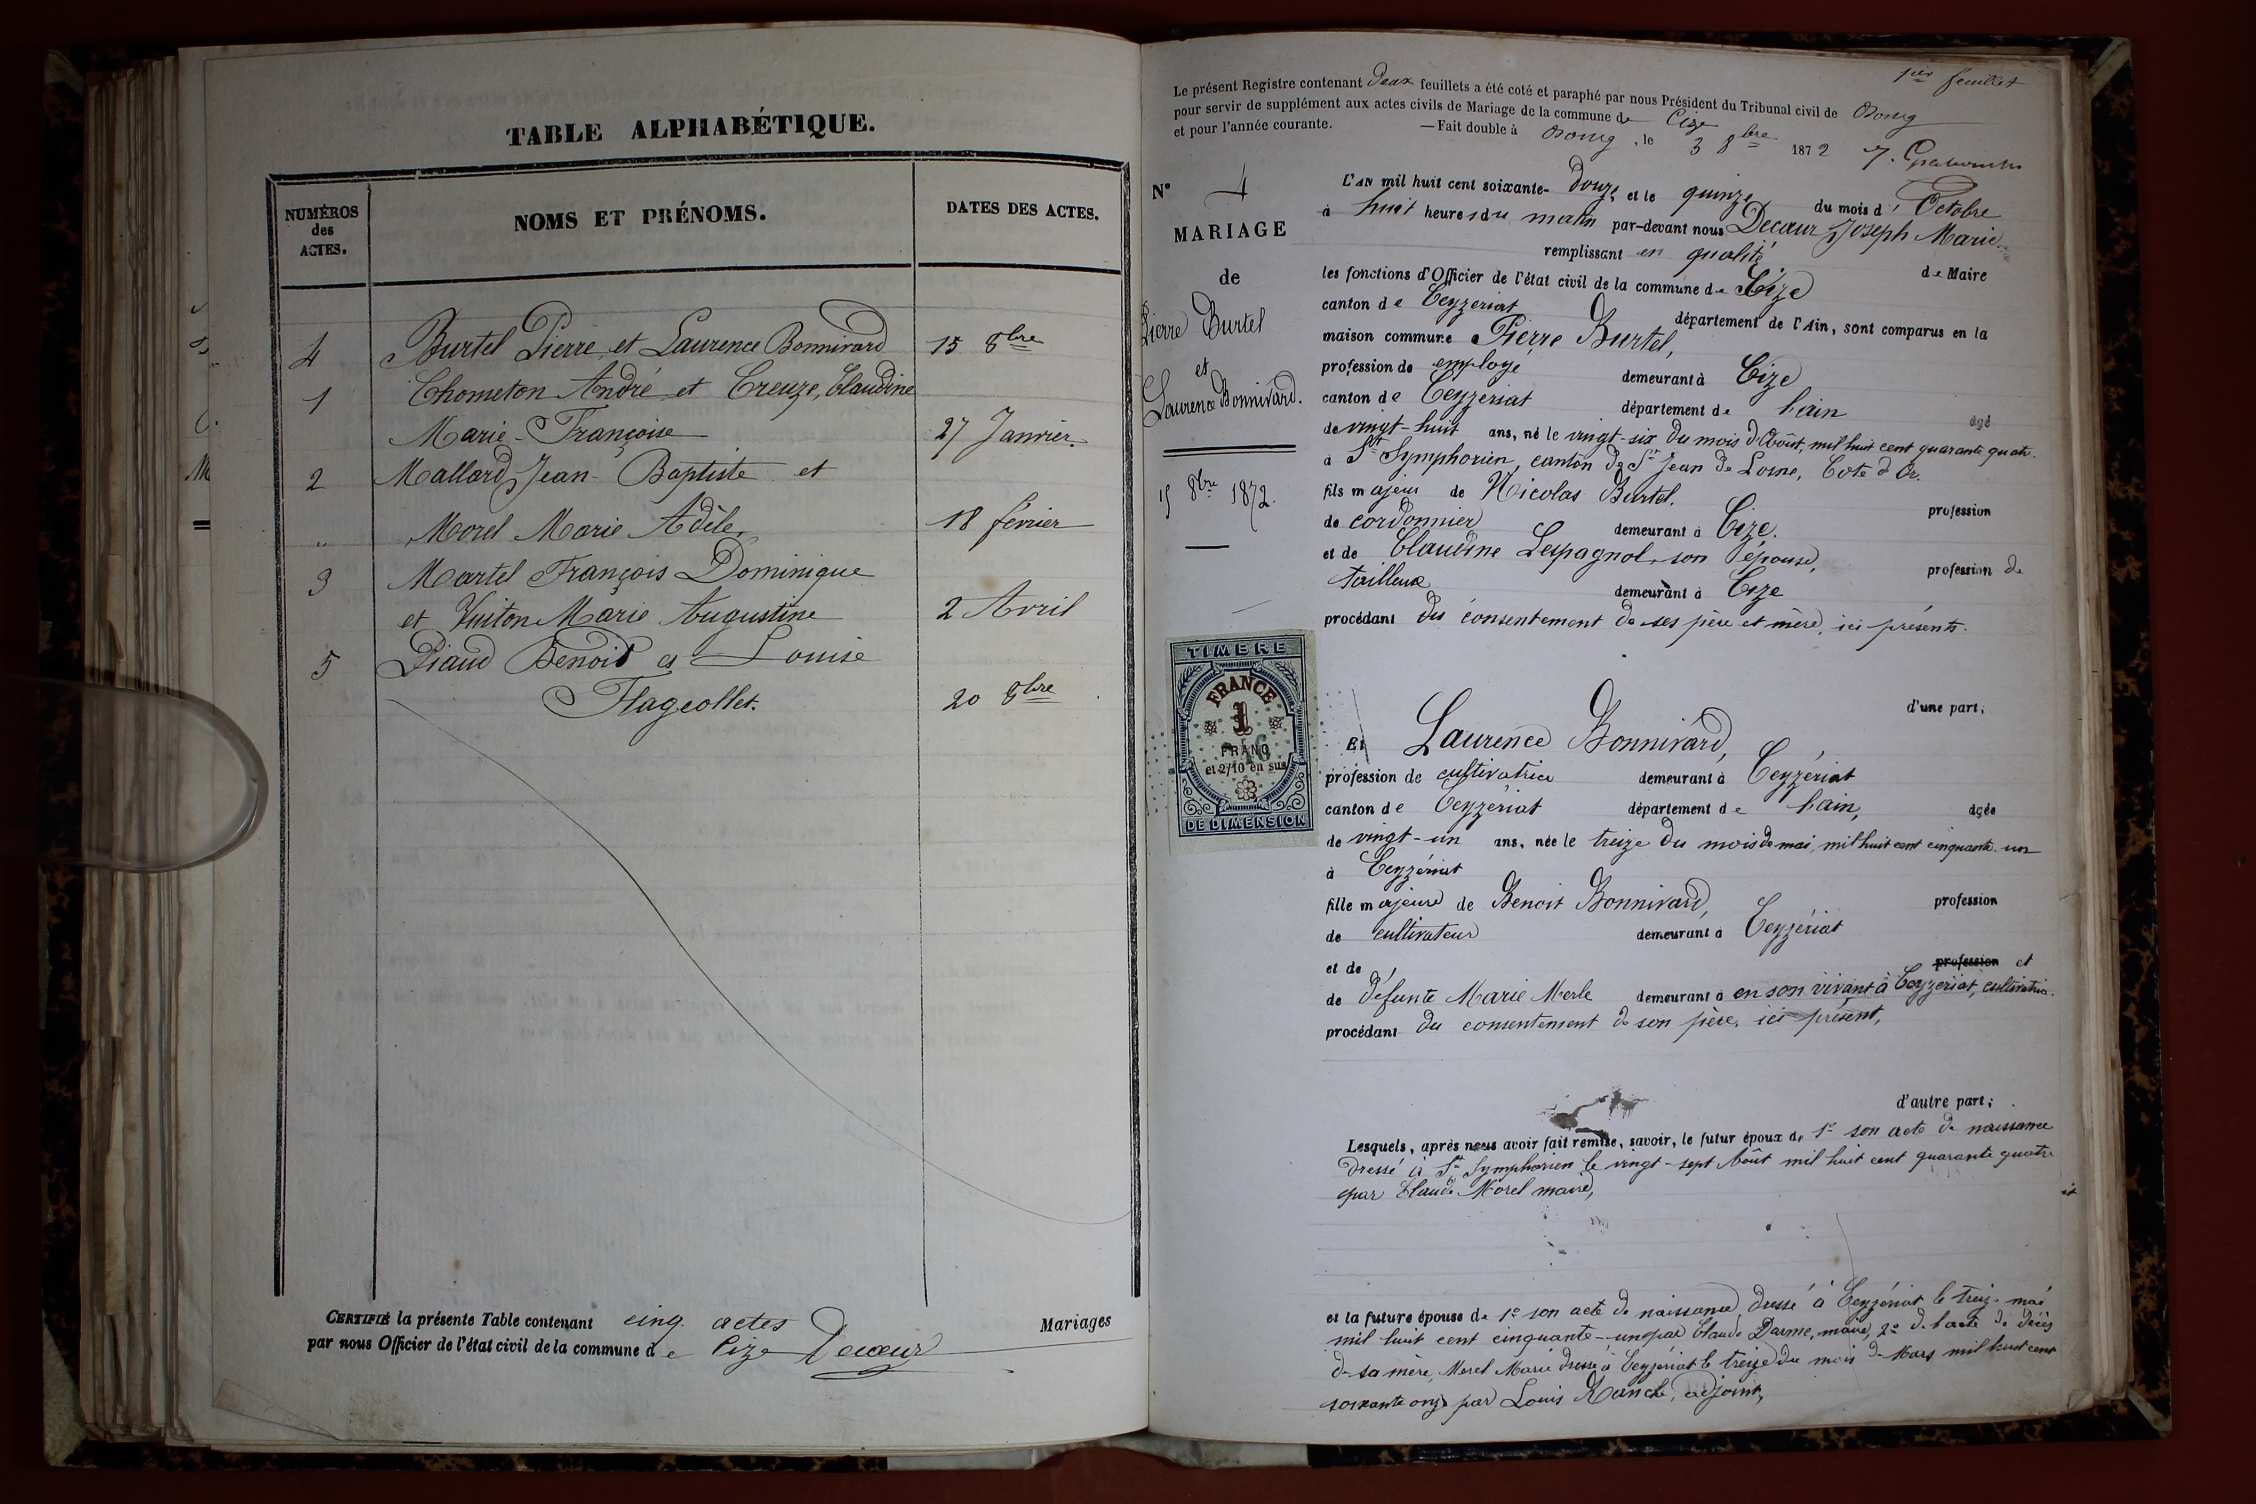 TABLE ALPHABÉTIQUE.
NUMÉROS
des
ACTES.
NOMS ET PRÉNOMS.
DATES DES ACTES.
4 Burtel Pierre et Laurence Bonnivard 15 8bre
1 Chometon André et Creuze, Claudine
Marie-Françoise 27 Janvier.
2 Mallard, Jean-Baptiste et
" Morel Marie Adèle, 18 février
3 Martel François Dominique
et Vuiton Marie Augustine 2 Avril
5 Piaud Benoit et Louise
Flageollet. 20 8bre
CERTIFIÉ la présente Table contenant cinq actes Mariages
par nous Officier de l'état civil de la commune de Cize Decœur
1er feuillet
Le présent Registre contenant deux feuillets a été coté et paraphé par nous Président du Tribunal civil de Bourg
pour servir de supplément aux actes civils de Mariage de la commune de Cize
et pour l'année courante. —Fait double à Bourg, le 3 8bre 1872
N° 4
MARIAGE
de
Pierre Burtel
et
Laurence Bonnivard.
15 8bre 1872.
L'AN mil huit cent soixante-douze, et le quinze du mois d'Octobre
à huit heures du matin par-devant nous Decœur Joseph Marie
remplissant en qualité de Maire
les fonctions d'Officier de l'état civil de la commune de Cize
canton de Ceyzériat département de l'Ain, sont comparus en la
maison commune Pierre Burtel,
profession de employé demeurant à Cize
canton de Ceyzeriat département de l'ain âgé
de vingt-huit ans, né le vingt-six du mois d'Août, mil huit cent quarante quatre
à St Symphorien, canton de St Jean de Losne, Cote d'Or.
fils majeur de Nicolas Burtel. profession
de cordonnier demeurant à Cize.
et de Claudine Lespagnol, son épouse, profession de
tailleuse demeurant à Cize
procédant du consentement de ses père et mère, ici présents.
d'une part;
TIMBRE
FRANCE
1
FRANC
et 2/10 en sus
46
DE DIMENSION
Et Laurence Bonnivard,
profession de cultivatrice demeurant à Ceyzériat
canton de Ceyzériat département de l'ain, âgée
de vingt-un ans, née le treize du mois de mai, mil huit cent cinquante-un
à Ceyzériat
fille majeure de Benoit Bonnivard, profession
de cultivateur demeurant à Ceyzériat
et de profession et
de défunte Marie Merle demeurant à en son vivant à Ceyzériat, cultivatrice.
procédant du consentement de son père, ici présent,
d'autre part;
Lesquels, après nous avoir fait remise, savoir, le futur époux de 1° son acte de naissance
dressé à St Symphorien le vingt-sept Août mil huit cent quarante quatre
par Claude Morel maire,
et la future épouse de 1° son acte de naissance, dressé à Ceyzériat le treize mai
mil huit cent cinquante-un par Claude Darme, maire, 2° de l'acte de décès
de sa mère, Merel Marie dressé à Ceyzériat le treize du mois de Mars mil huit cent
soixante onze par Louis Ranche, adjoint,